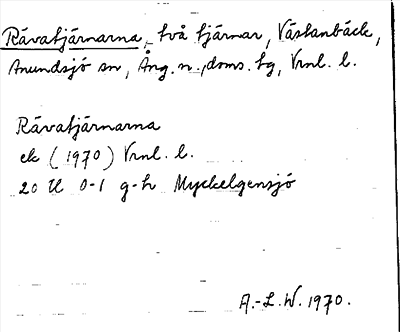 Rävatjärnarna, två tjärnar, Västanbäck,
Anundsjö sn, Ång. n., doms. hg, Vrnl. l.
Rävatjärnarna
ek (1970) Vrnl. l.
20 H 0-1 g-h Myckelgensjö
A.-L. W. 1970.